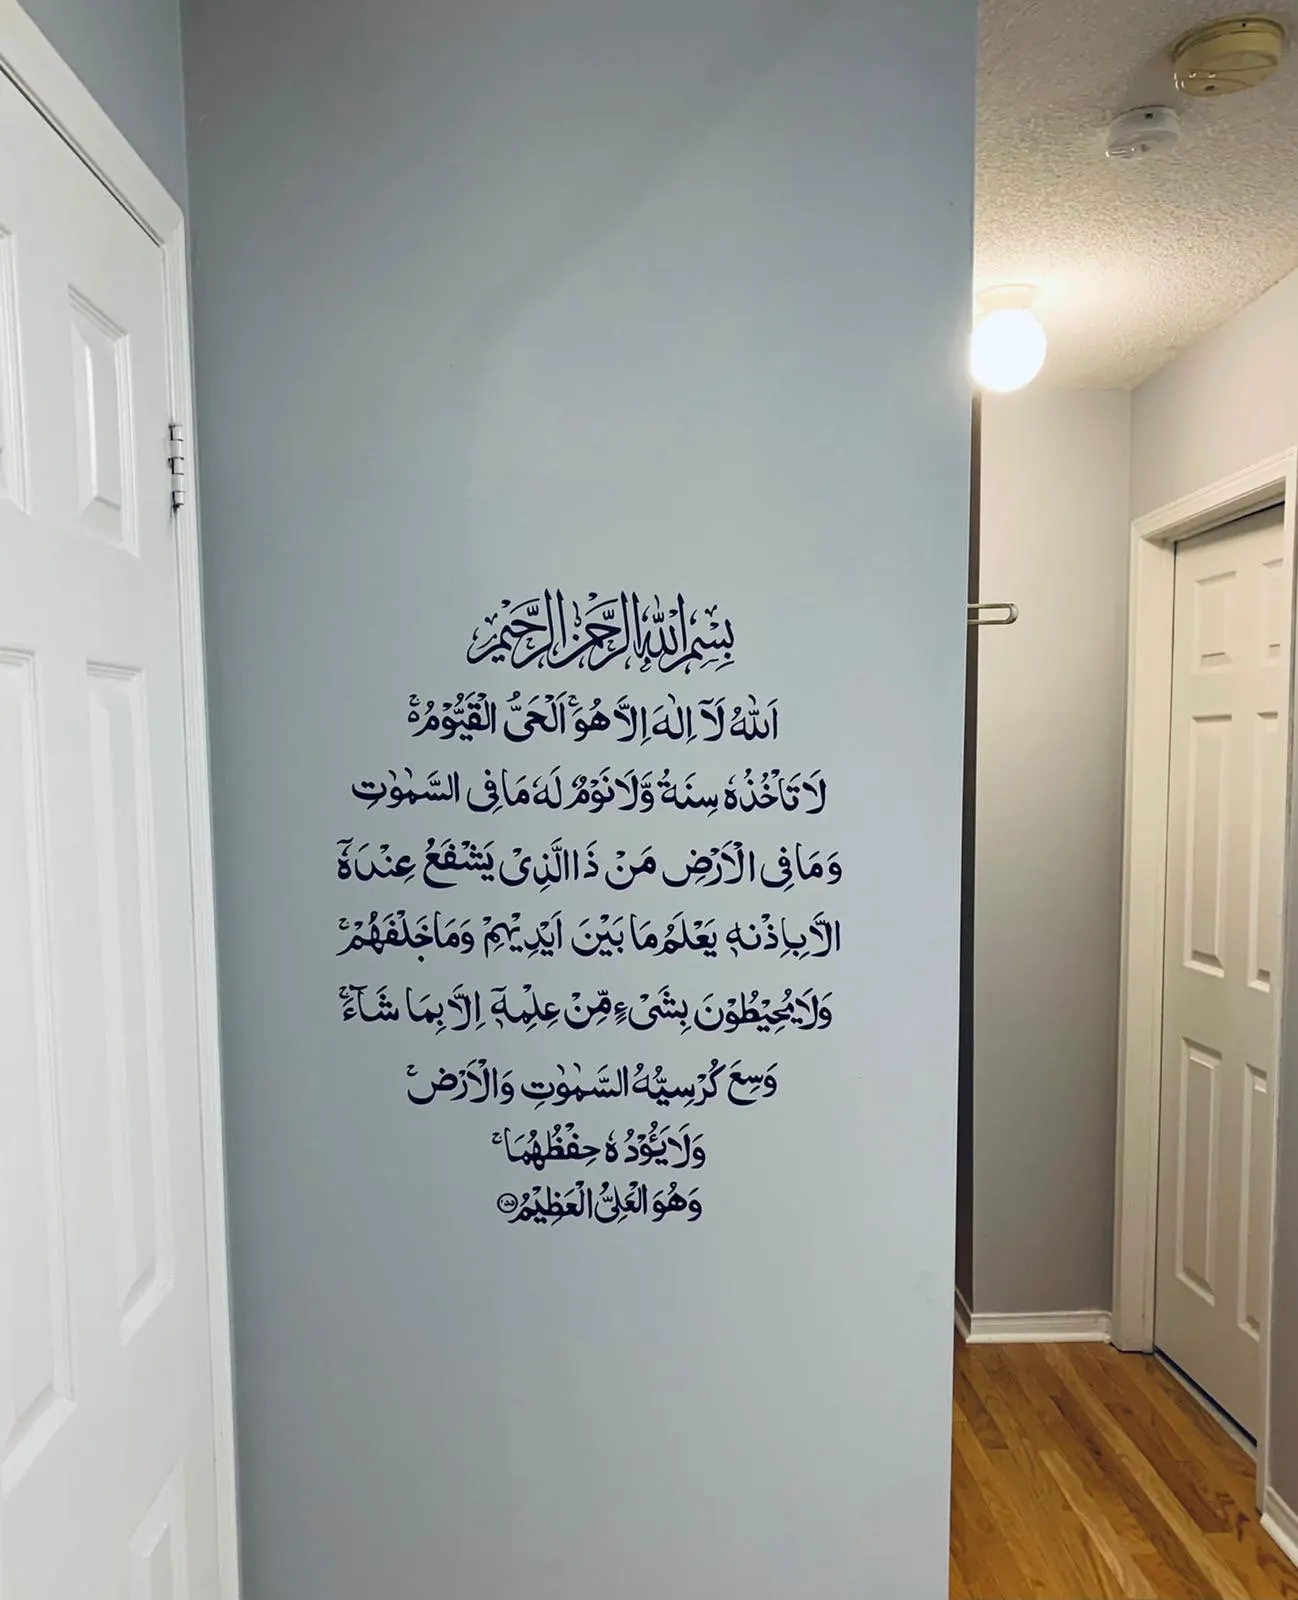 بِسْمِ اللّٰهِ الرَّحْمٰنِ الرَّحِيْمِ
اَللّٰهُ لَآ اِلٰهَ اِلَّا هُوَ ۚ اَلْحَىُّ الْقَيُّوْمُ ۬ۚ
لَا تَاْخُذُهٗ سِنَةٌ وَّلَا نَوْمٌ لَهٗ مَا فِى السَّمٰوٰتِ
وَمَا فِى الْاَرْضِ مَنْ ذَا الَّذِىْ يَشْفَعُ عِنْدَهٗٓ
اِلَّا بِاِذْنِهٖ يَعْلَمُ مَا بَيْنَ اَيْدِيْهِمْ وَمَا خَلْفَهُمْ ۚ
وَلَا يُحِيْطُوْنَ بِشَىْءٍ مِّنْ عِلْمِهٖٓ اِلَّا بِمَا شَآءَ ۚ
وَسِعَ كُرْسِيُّهُ السَّمٰوٰتِ وَالْاَرْضَ ۚ
وَلَا يَـُٔوْدُهٗ حِفْظُهُمَا ۚ
وَهُوَ الْعَلِىُّ الْعَظِيْمُ ۝۲۵۵